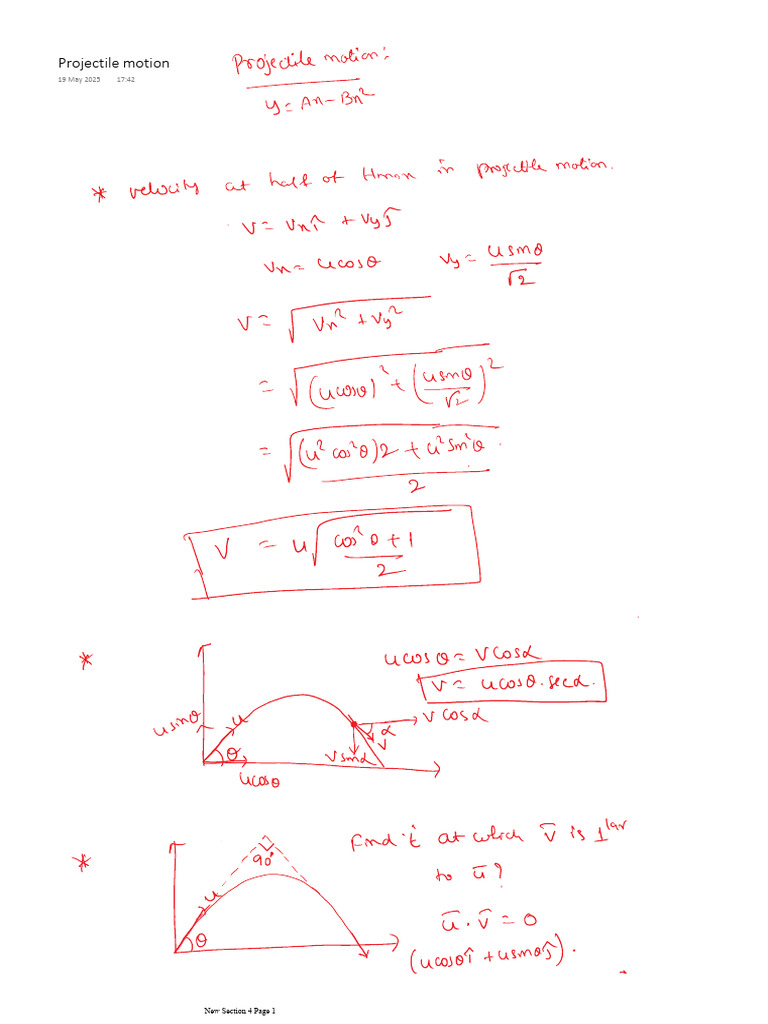 Projectile motion
19 May 2025 17:42
Projectile motion:
y = Ax - Bx²
* velocity at half of Hmax in projectile motion.
V = Vxî + Vyĵ
Vx = ucosθ Vy = usinθ/√2
V = √(Vx² + Vy²)
= √((ucosθ)² + (usinθ/√2)²)
= √(((u²cos²θ)2 + u²sin²θ)/2)
V = u√((cos²θ + 1)/2)
* ucosθ = Vcosα
V = ucosθ.secα.
usinθ u θ ucosθ Vcosα α V Vsinα
* Find 't' at which v̄ is ⊥lar
to ū?
90° u θ
ū . v̄ = 0
(ucosθî + usinθĵ).
New Section 4 Page 1